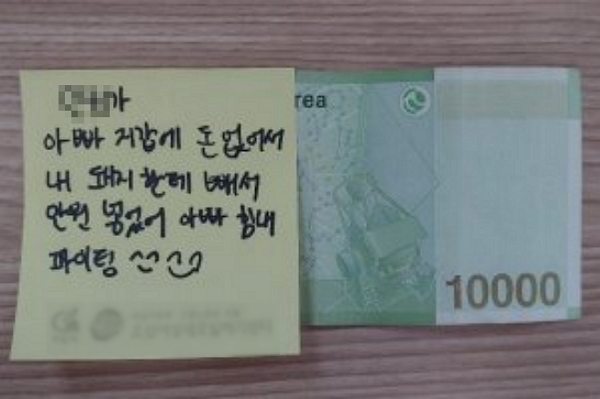 가
아빠 지갑에 돈 없어서
내 돼지한테 빼서
만원 넣었어 아빠 힘내
파이팅 ^^
rea
10000